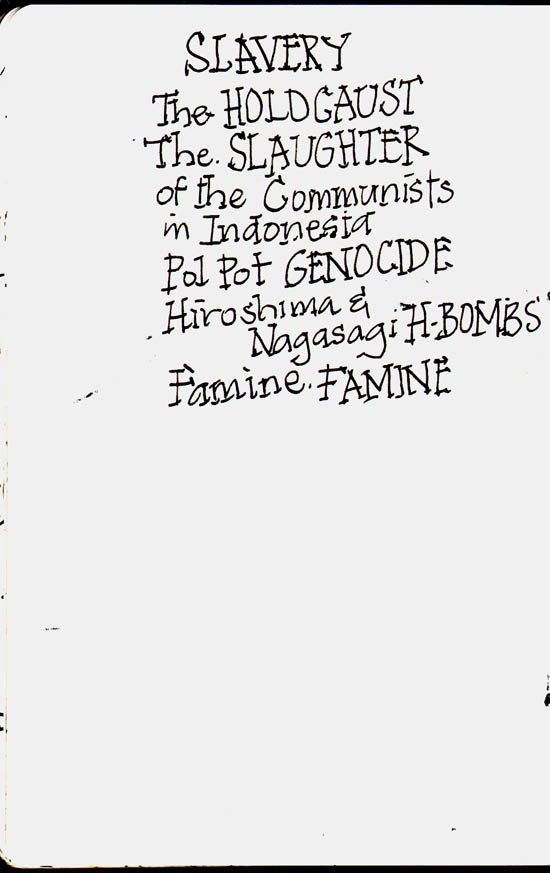 SLAVERY
The HOLDGAUST
The. SLAUGHTER
of the Communists
in Indonesia
Pol Pot GENOCIDE
Hiroshima &
Nagasagi H-BOMBS
Famine. FAMINE